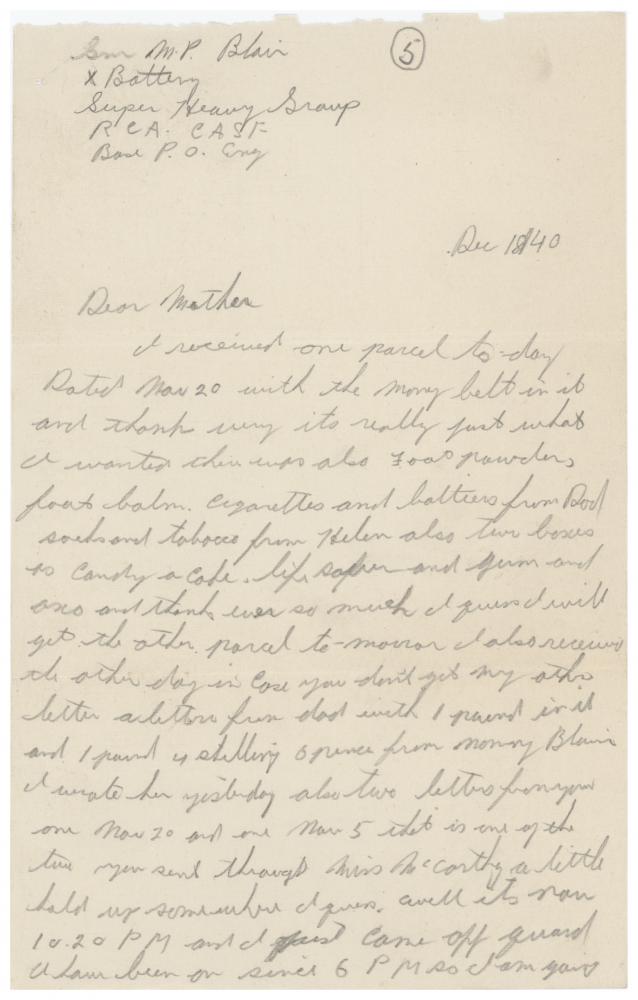 Gnr M.P. Blair
5
X Battery
Super Heavy Group
R C A. C A S F
Base P. O. Eng
Dec 18/40
Dear Mother
I received one parcel to-day
Dated Nov 20 with the mony belt in it
and thank very its really just what
I wanted there was also Foot powder,
foot balm. cigarettes and batties from Dad
socks and tobacco from Helen also two boxes
of candy a cake. life safer and gum and
oxo and thank ever so much I guess I will
get the other parcel to-morror I also received
the other day in case you don't get my other
letter a letter from dad with 1 pound in it
and 1 pound 4 shelling 5 pence from mommy Blair
I wrote her yesterday also two letters from you
one Nov 20 and one Nov 5 that is one of the
two you sent through Miss McCarthy a little
hold up somewhere I guess. well its now
10.20 P M and I just came off guard
I have been on since 6 P M so I am going